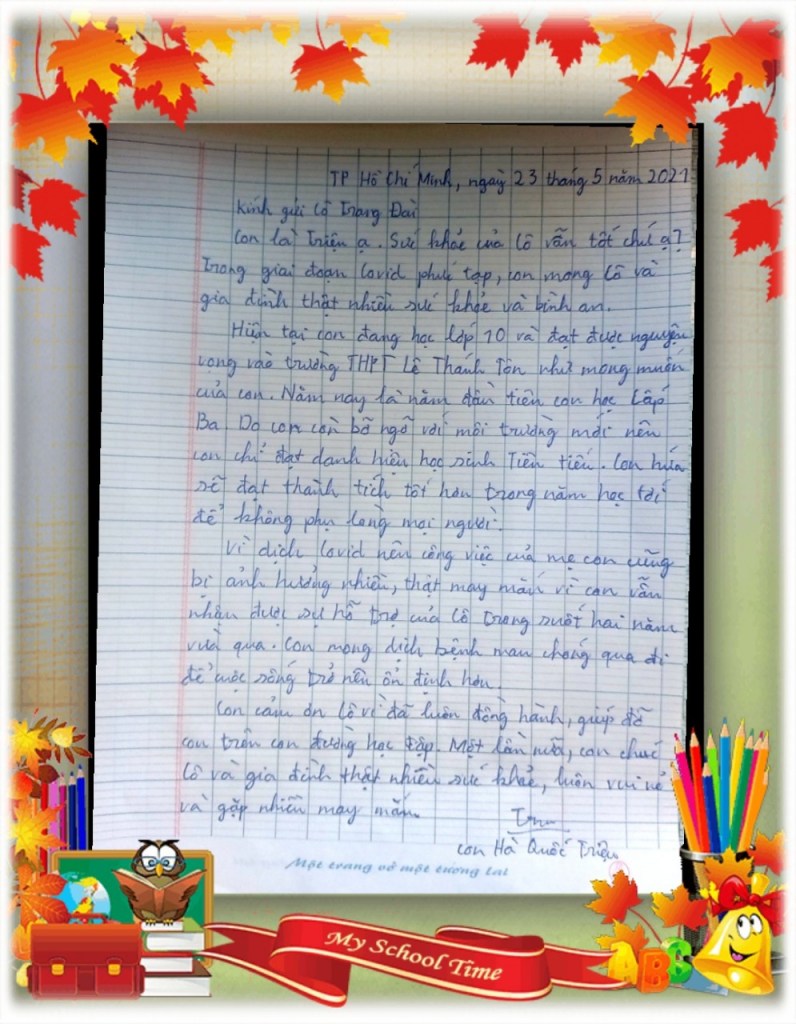 TP Hồ Chí Minh, ngày 23 tháng 5 năm 2021
Kính gửi Cô Trang Đài
Con là Triệu ạ. Sức khỏe của Cô vẫn tốt chứ ạ?
Trong giai đoạn Covid phức tạp, con mong Cô và
gia đình thật nhiều sức khỏe và bình an.
Hiện tại con đang học lớp 10 và đạt được nguyện
vọng vào trường THPT Lê Thánh Tôn như mong muốn
của con. Năm nay là năm đầu tiên con học Cấp
Ba. Do con còn bỡ ngỡ với môi trường mới nên
con chỉ đạt danh hiệu học sinh Tiên tiến. Con hứa
sẽ đạt thành tích tốt hơn trong năm học tới
để không phụ lòng mọi người.
Vì dịch Covid nên công việc của mẹ con cũng
bị ảnh hưởng nhiều, thật may mắn vì con vẫn
nhận được sự hỗ trợ của Cô trong suốt hai năm
vừa qua. Con mong dịch bệnh mau chóng qua đi
để cuộc sống trở nên ổn định hơn.
Con cảm ơn Cô vì đã luôn đồng hành, giúp đỡ
con trên con đường học tập. Một lần nữa, con chúc
Cô và gia đình thật nhiều sức khỏe, luôn vui vẻ
và gặp nhiều may mắn.
con Hà Quốc Triệu
Một trang vở một tương lai
My School Time
ABC